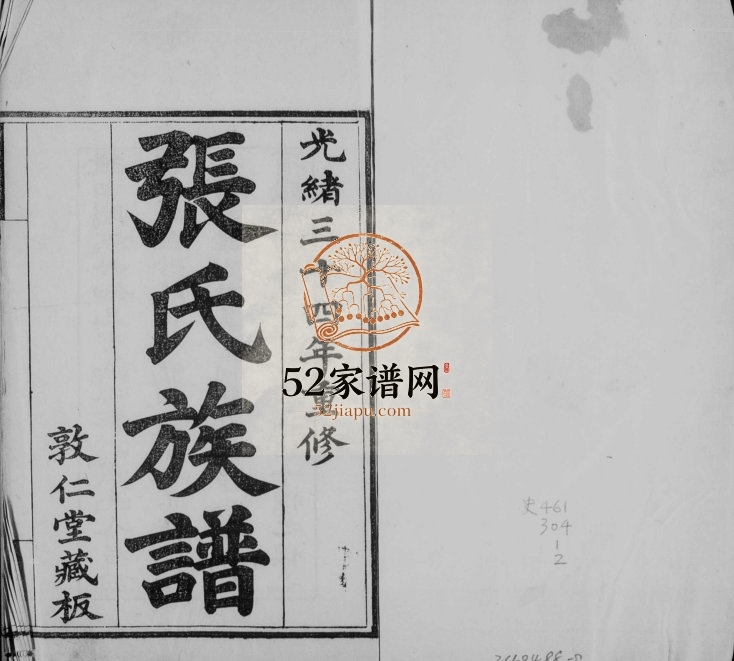 光緒三十四年重修
張氏族譜
敦仁堂藏板
52家谱网
52jiapu.com
史461
304
1
2